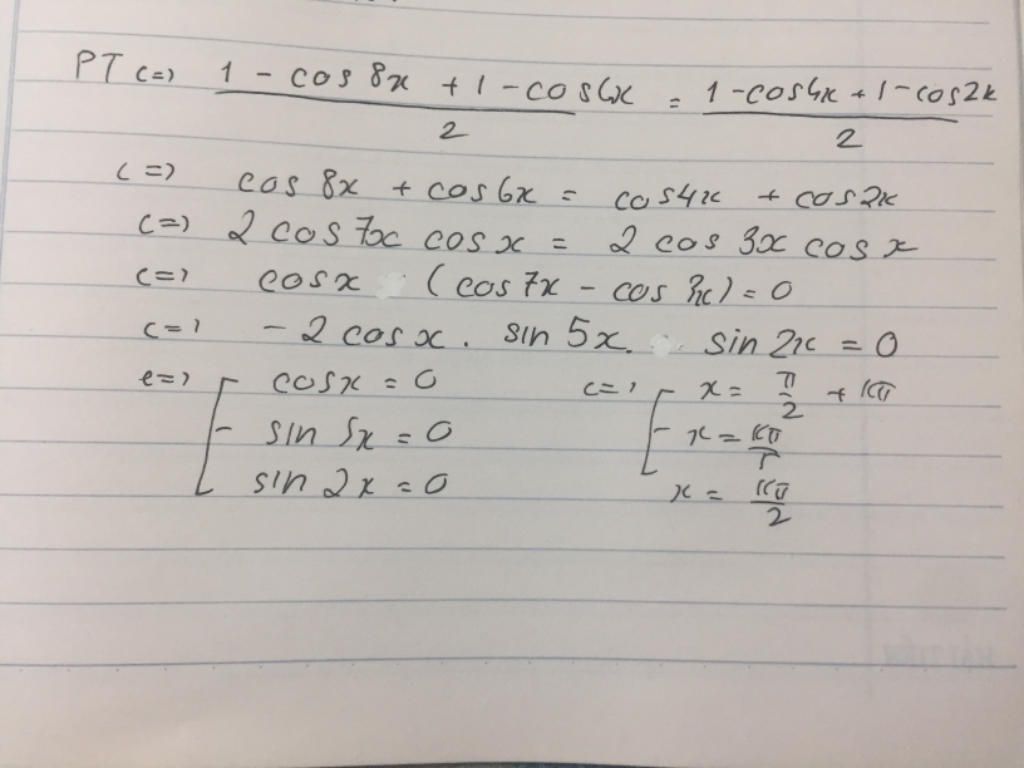 PT <=> (1 - cos 8x + 1 - cos 6x) / 2 = (1 - cos 4x + 1 - cos 2x) / 2
<=> cos 8x + cos 6x = cos 4x + cos 2x
<=> 2 cos 7x cos x = 2 cos 3x cos x
<=> cos x (cos 7x - cos 3x) = 0
<=> - 2 cos x . sin 5x . sin 2x = 0
<=> [ cos x = 0 <=> [ x = π/2 + kπ
sin 5x = 0 x = kπ/5
sin 2x = 0 x = kπ/2